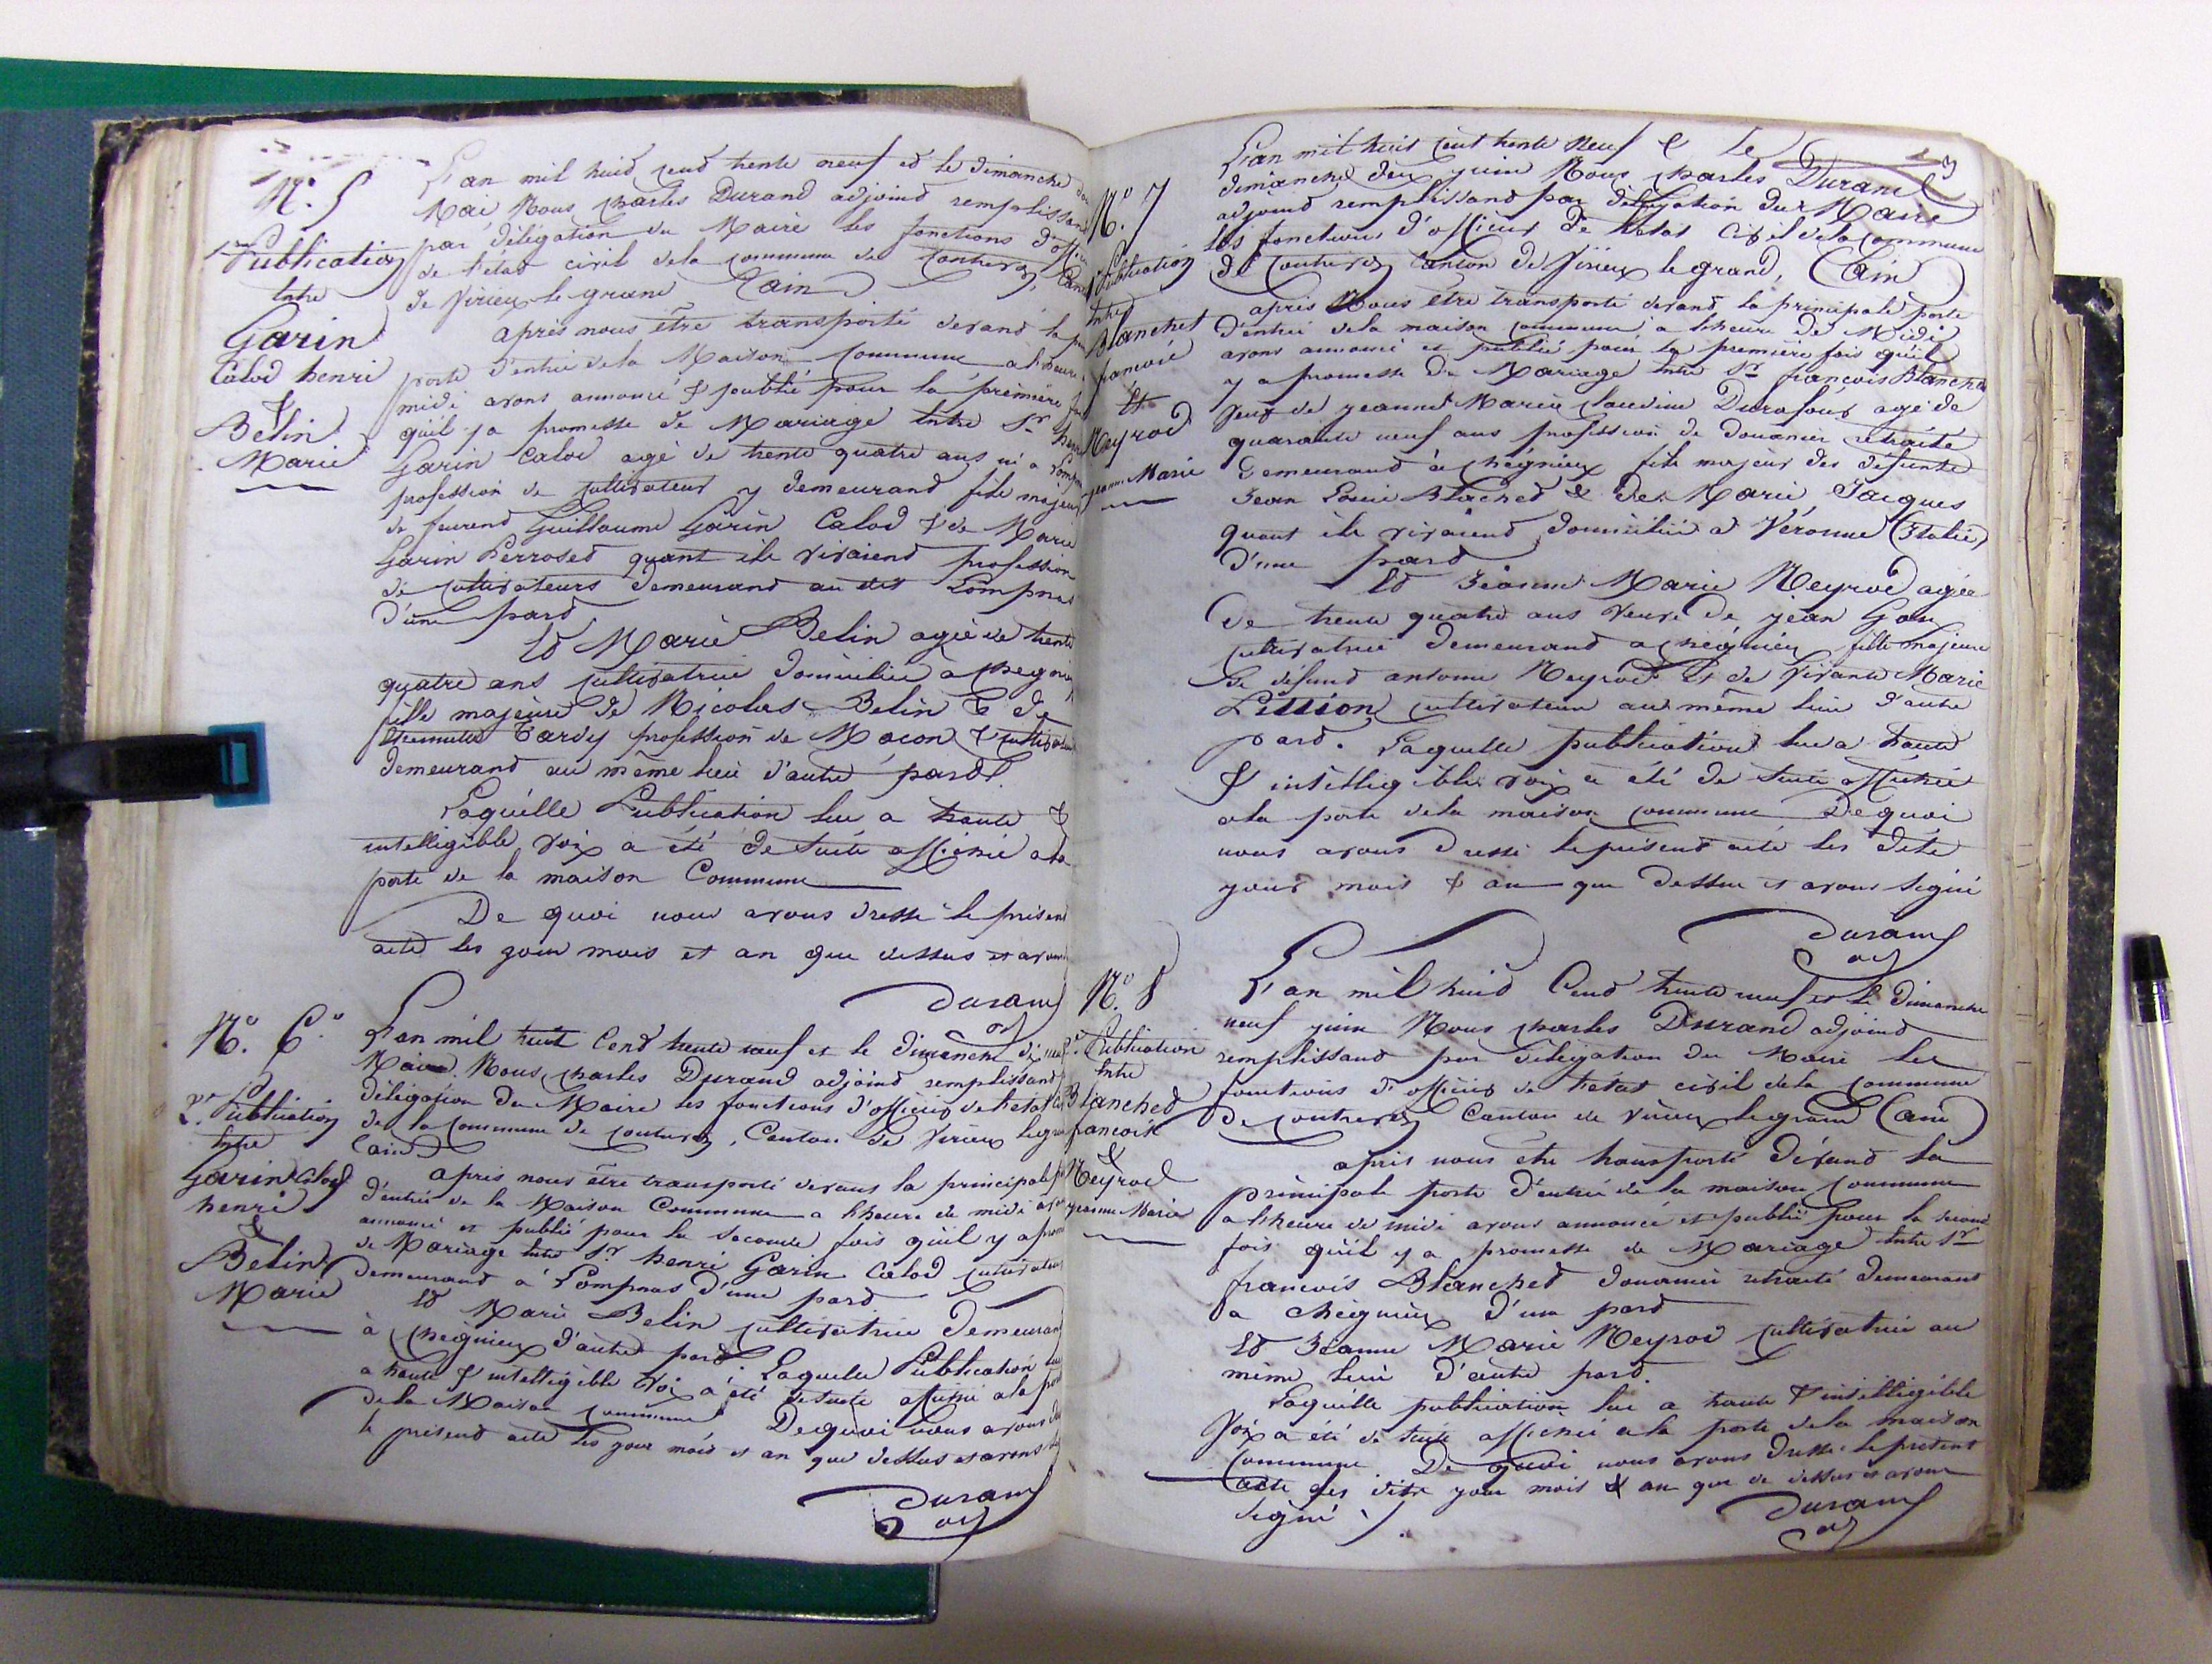 N.° 5
1ère Publication
Entre
Garin
Calod henri
&
Belin
Marie
L'an mil huid cend trente neuf ed le dimanche
Mai Nous charles Durand adjoind remplissand
par délégation du Maire les fonctions d'offici
de l'état civil dela commune de Contrevoz, Can
de Virieu le grand (ain)
après nous être transporté devand la
porte d'entrée dela Maison commune a l'heure
midi avons annoncé & publié pour la première
qu'il ya promesse de Mariage Entre Sr henri
Garin Calod agé de trente quatre ans né a Lompn
profession de cultivateur y demeurand fils majeur
de feurend Guillaume Garin Calod & de Marie
Garin Perrosed quant ils vivaiend profession
de cultivateurs demeurand au dit Lompnas
d'une pard
Ed Marie Belin agée de trente
quatre ans cultivatrice domiciliée a chegni
fille majeure de Nicolas Belin & de
Tardy profession de Maçon &
demeurand au même lieu d'autre pard.
Laquelle Publication lue a haute &
intelligible voix a été de suite affichée a la
porte de la maison Commune
De quoi nous avons dressé le présend
acte les jour mois et an que dessus et avons
Durand
adj
N°. 6.
2e. Publication
Entre
Garin Calod
henri
&
Belin
Marie
L'an mil huit Cend trente neuf et le dimanche dix neuf
Mai Nous, charles Durand adjoind remplissand
délégation du Maire les fonctions d'officier de l'etat
de la commune de contrevoz, Canton de Virieu le gra
(ain)
après nous être transporté devans la principale
d'entrée de la Maison Commune a l'heure de midi avon
annoncé et publié pour la seconde fois qu'il y a prom
de Mariage Entre Sr henri Garin Calod cultivateur
demeurand a Lompnas d'une pard
Ed Marie Belin cultivatrice demeurand
à cheignieu d'autre pard Laquelle Publication lue
a haute & intelligible voix a été de suite affichée a la port
dela Maison commune Dequoi nous avons
le présend acte les jour mois et an que dessus et avons
Durand
adj
3
N.° 7
Publication
Entre
Blanchet
francois
Et
Neyrod
jeanne Marie
L'an mil huit cent trente Neuf & Le
dimanche deux juin Nous charles Durand
adjoind remplissand par délégation du Maire
les fonctions d'officier de l'etat civil dela Commune
de Contrevoz Canton de Virieu le grand, (Ain)
après Nous être transporté devand la principale porte
d'entrée dela maison commune a l'heure de Midi
avons annoncé et publié pour la première fois qu'il
y a promesse de Mariage Entre Sr francois Blanched
veuf de jeanne Marie claudine Durafour agé de
quarante neuf ans profession de douanier retraité
demeurand à cheignieux fils majeur des défunts
Jean Louis Blached & de Marie Jacques
quant ils vivaiend domicilié a Véronne (Italie)
d'une pard
Ed Jeanne Marie Neyrod agée
de trente quatre ans veuve de jean Goy
cultivatrice demeurand a cheignieu fille majeure
de défund antoine Neyrod et de vivante Marie
Lission cultivateur au même lieu d'autre
pard. Laquelle publication lue a haute
& intelligible voix a été de suite affichée
ala porte dela maison commune De quoi
nous avons dressé le présend acte les dits
jour mois & an que dessus et avons signé
Durand
adj
N°. 8
2e. Publication
Entre
Blanched
francois
&
Neyrod
jeanne Marie
L'an mil huid Cend trente neuf et le dimanche
neuf juin Nous charles Durand adjoind
remplissand par délégation du Maire les
fonctions d'officier de l'état civil dela commune
de contrevoz Canton de Virieu le grand (ain)
après nous être transporté dévand la
principale porte d'entrée de la maison commune
a l'heure de midi avons annoncé et publié pour la second
fois qu'il y a promesse de Mariage Entre Sr
francois Blanched douanier retraité demeurant
a cheignieu d'une pard
Ed Jeanne Marie Neyrod cultivatrice au
même lieu d'autre pard.
Laquelle publication lue a haute & intelligible
Voix a été de suite affichée ala porte dela maison
commune De quoi nous avons dressé le présent
acte les dits jour mois & an que de dessus et avons
signé
Durand
adj